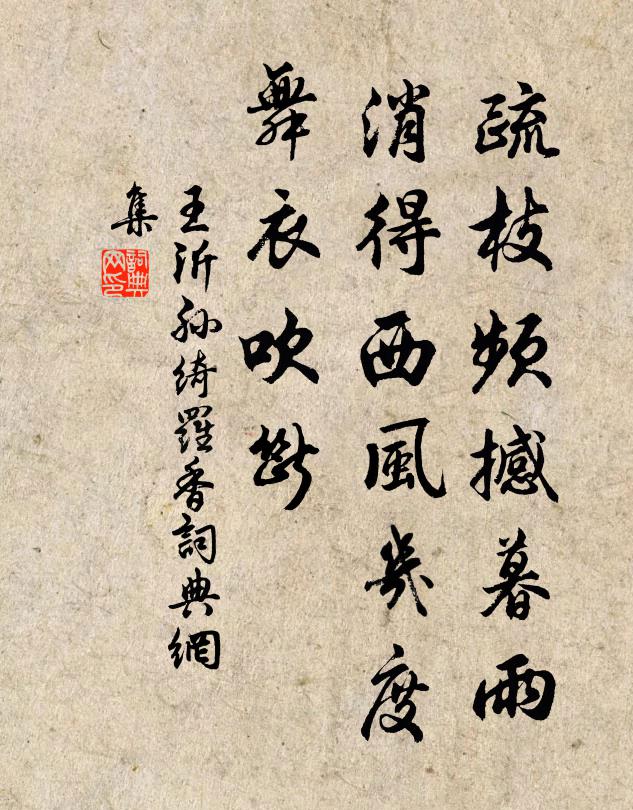 疏枝頻撼暮雨
消得西風幾度
舞衣吹斷
王沂孙綺羅香詞典網
集
詞典
网印